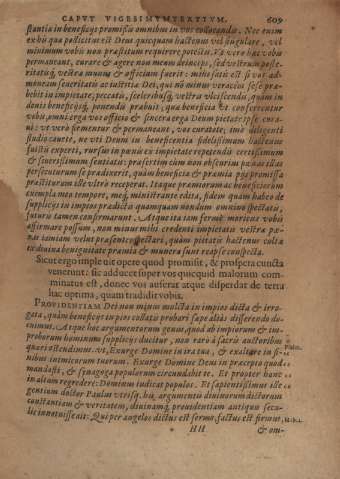 CAPVT VIGESIMVMTERTIVM. 609
stantia in beneficijs promissa omnibus in vos collocando. Nec enim
exhis quæ pollicitus est Deus quicquam hactenus vel singulare, vel
minimum vobis non præstitum requirere potestis. Vt vero hæc vobis
permaneant, curare & agere non meum deinceps, sed vestrum poste-
ritatisque vestræ munus & officium fuerit: mihi satis est si vos ad-
moneam seueritatis ac iustitiæ Dei, qui nō minus veracem sese præ-
bebit in impietate, peccatis, sceleribusque vestris vlciscendis, quam in
donis beneficijsque ponendis præbuit, quæ beneficia vt conseruentur
vobis, omni erga vos officio & sincera erga Deum pietate
rani: vt vero firmentur & permaneant, vos curate, imò diligenti
studio cauete, ne vti Deum in beneficentia fidelissimum hactenus
fuistis experti, rursus in pœnis ex impietate repetendis certissimum
& sincerissimum sentiatis: præsertim cùm non obscuris pœnas illas
persecuturum se prædixerit, quàm beneficia & præmia pijs promissa
præstiturum iste vltrò receperat. Itaque præmiorum ac beneficiorum
exempla meo tempore, meque ministrante edita, fidem quàm habeo de
supplicijs in impios prædictis quamquam nondum omnino spectatis,
futuris tamen confirmarunt. Atque ita iam fermè moriturus vobis
affirmare possum, non minus mihi credenti impietatis vestræ pœ-
nas tamiam velut præsentes spectari, quàm pietatis hactenus cultæ
tradiuina benignitate præmia & munera sunt reapse conspecta.
Sicut ergo impleuit opere quod promisit, & prospera cuncta
venerunt: sic adducet super vos quicquid malorum com-
minatus est, donec vos auferat atque disperdat de terra
hac optima, quam tradidit vobis.
PROVIDENTIAM Dei non minus mulcta in impios dicta & irro-
gata, quàm beneficijs in pios collatis probari sæpe alias differendo do-
cuimus. Atque hoc argumentorum genus, quod ab impiorum & im-
proborum hominum supplicijs ducitur, non raro à sacris auctoribus
quæri ostendimus. vt, Exurge Domine in ira tua, & exaltare in fi- Psalm.
nibus inimicorum tuorum. Exurge Domine Deus in præcepto quod
mandasti, & synagoga populorum circundabit te. Et propter hanc
in altum regredere: Dominus iudicat populos. Et sapientissimus ille
gentium doctor Paulus vtrisque his argumentis diuinarum dictorum
constantiam & veritatem, diuinamque prouidentiam antiquis secu-
lis innotuisse ait: Qui per angelos dictus est sermo, factus est firmus,
HH & om-